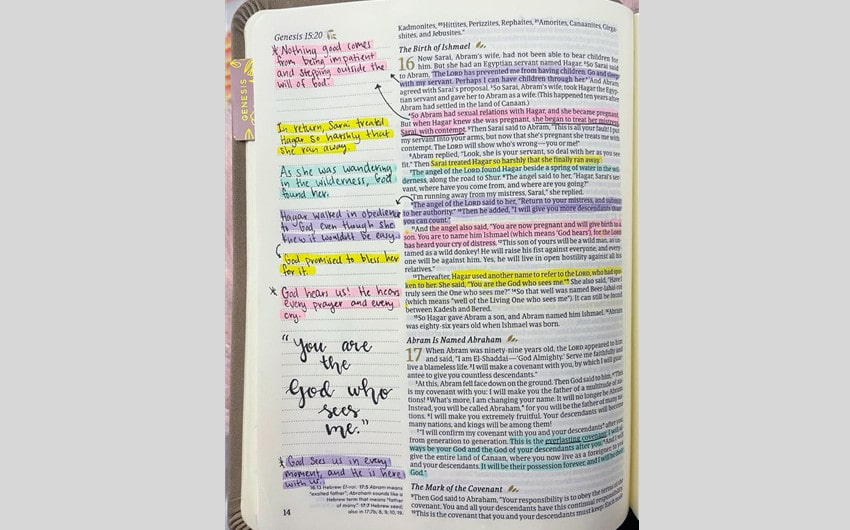 Genesis 15:20
* Nothing good comes
from being impatient
and stepping outside the
will of God
In return, Sarai treated
Hagar so harshly that
she ran away.
As she was wandering
in the wilderness, God
found her.
Hagar walked in obedience
to God, even though she
knew it wouldn't be easy.
God promised to bless her
for it.
* God hears us! He hears
every prayer and every
cry.
"You are
the
God who
sees
me."
* God sees us in every
moment, and He is here
with us.
16:13 Hebrew El-roi. 17:5 Abram means
"exalted father"; Abraham sounds like a
Hebrew term that means "father
of many." 17:7 Hebrew seed;
also in 17:7b, 8, 9, 10, 19.
14
GENESIS
Kadmonites, 20Hittites, Perizzites, Rephaites, 21Amorites, Canaanites, Girga-
shites, and Jebusites."
The Birth of Ishmael
16 Now Sarai, Abram's wife, had not been able to bear children for
him. But she had an Egyptian servant named Hagar. 2So Sarai said
to Abram, "The LORD has prevented me from having children. Go and sleep
with my servant. Perhaps I can have children through her." And Abram
agreed with Sarai's proposal. 3So Sarai, Abram's wife, took Hagar the Egyp-
tian servant and gave her to Abram as a wife. (This happened ten years after
Abram had settled in the land of Canaan.)
4So Abram had sexual relations with Hagar, and she became pregnant.
But when Hagar knew she was pregnant, she began to treat her mistress,
Sarai, with contempt. 5Then Sarai said to Abram, "This is all your fault! I put
my servant into your arms, but now that she's pregnant she treats me with
contempt. The LORD will show who's wrong—you or me!"
6Abram replied, "Look, she is your servant, so deal with her as you see
fit." Then Sarai treated Hagar so harshly that she finally ran away.
7The angel of the LORD found Hagar beside a spring of water in the wil-
derness, along the road to Shur. 8The angel said to her, "Hagar, Sarai's ser-
vant, where have you come from, and where are you going?"
"I'm running away from my mistress, Sarai," she replied.
9The angel of the LORD said to her, "Return to your mistress, and submit
to her authority." 10Then he added, "I will give you more descendants than
you can count."
11And the angel also said, "You are now pregnant and will give birth to a
son. You are to name him Ishmael (which means 'God hears'), for the LORD
has heard your cry of distress. 12This son of yours will be a wild man, as un-
tamed as a wild donkey! He will raise his fist against everyone, and every-
one will be against him. Yes, he will live in open hostility against all his
relatives."
13Thereafter, Hagar used another name to refer to the LORD, who had spo-
ken to her. She said, "You are the God who sees me."* She also said, "Have I
truly seen the One who sees me?" 14So that well was named Beer-lahai-roi
(which means "well of the Living One who sees me"). It can still be found
between Kadesh and Bered.
15So Hagar gave Abram a son, and Abram named him Ishmael. 16Abram
was eighty-six years old when Ishmael was born.
Abram Is Named Abraham
17 When Abram was ninety-nine years old, the LORD appeared to him
and said, "I am El-Shaddai—'God Almighty.' Serve me faithfully and
live a blameless life. 2I will make a covenant with you, by which I will guar-
antee to give you countless descendants."
3At this, Abram fell face down on the ground. Then God said to him, 4"This
is my covenant with you: I will make you the father of a multitude of na-
tions! 5What's more, I am changing your name. It will no longer be Abram.
Instead, you will be called Abraham,* for you will be the father of many na-
tions. 6I will make you extremely fruitful. Your descendants will become
many nations, and kings will be among them!
7"I will confirm my covenant with you and your descendants* after you,
from generation to generation. This is the everlasting covenant: I will al-
ways be your God and the God of your descendants after you. 8And I will
give the entire land of Canaan, where you now live as a foreigner, to you
and your descendants. It will be their possession forever, and I will be their
God."
The Mark of the Covenant
9Then God said to Abraham, "Your responsibility is to obey the terms of the
covenant. You and all your descendants have this continual responsibility.
10This is the covenant that you and your descendants must keep: Each